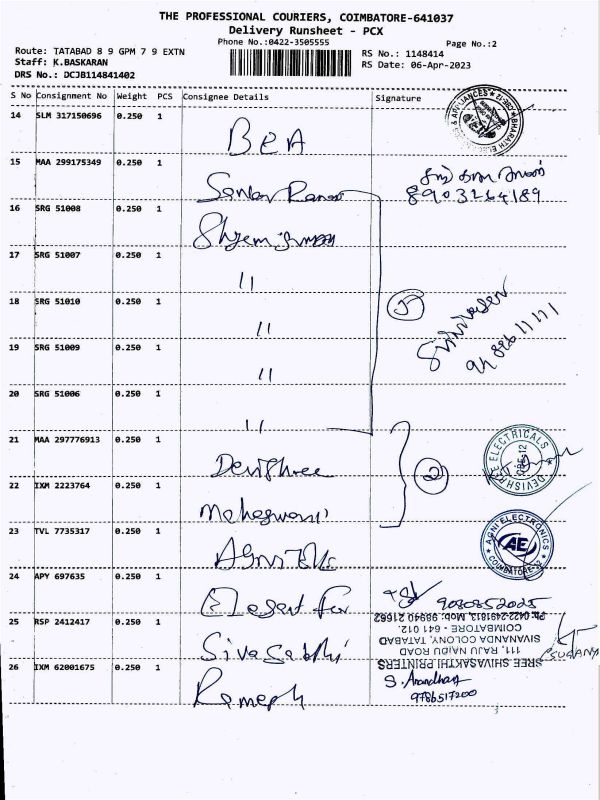 THE PROFESSIONAL COURIERS, COIMBATORE-641037
Delivery Runsheet - PCX
Phone No.:0422-3505555
Page No.:2
Route: TATABAD 8 9 GPM 7 9 EXTN
RS No.: 1148414
Staff: K.BASKARAN
RS Date: 06-Apr-2023
DRS No.: DCJB114841402
S No Consignment No Weight PCS Consignee Details Signature
14 SLM 317150696 0.250 1
BEA
15 MAA 299175349 0.250 1
8903264189
16 SRG 51008 0.250 1
17 SRG 51007 0.250 1
11
18 SRG 51010 0.250 1
11
19 SRG 51009 0.250 1
11
20 SRG 51006 0.250 1
11
21 MAA 297776913 0.250 1
Devishree
DEVISHREE ELECTRICALS
22 IXM 2223764 0.250 1
2
Maheswari
23 TVL 7735317 0.250 1
AGNI ELECTRONICS
AE
COIMBATORE-12
24 APY 697635 0.250 1
Elegant fur
9080852025
25 RSP 2412417 0.250 1
Ph: 0422-241813, Mob: 98940 21662
COIMBATORE - 641 012.
SIVANANDA COLONY, TATABAD
111, RAJU NAIDU ROAD
SREE SHIVASAKTHI PRINTERS
Siva Sakthi
26 IXM 62001675 0.250 1
S. Anandhan
9786517200
Ramesh